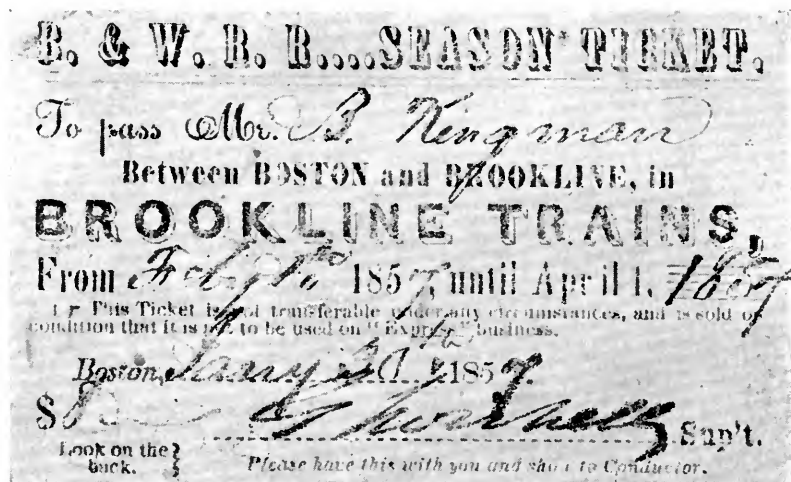 B. & W. R. R....SEASON TICKET.
To pass Mr. B. Kingman
Between BOSTON and BROOKLINE, in
BROOKLINE TRAINS,
From Feby 1st 1857, until April 1, 1857
This Ticket is not transferable under any circumstances, and is sold on
condition that it is not to be used on "Express" business.
Boston, Jany 1857.
$ Sup't.
Look on the
back.
Please have this with you and show to Conductor.